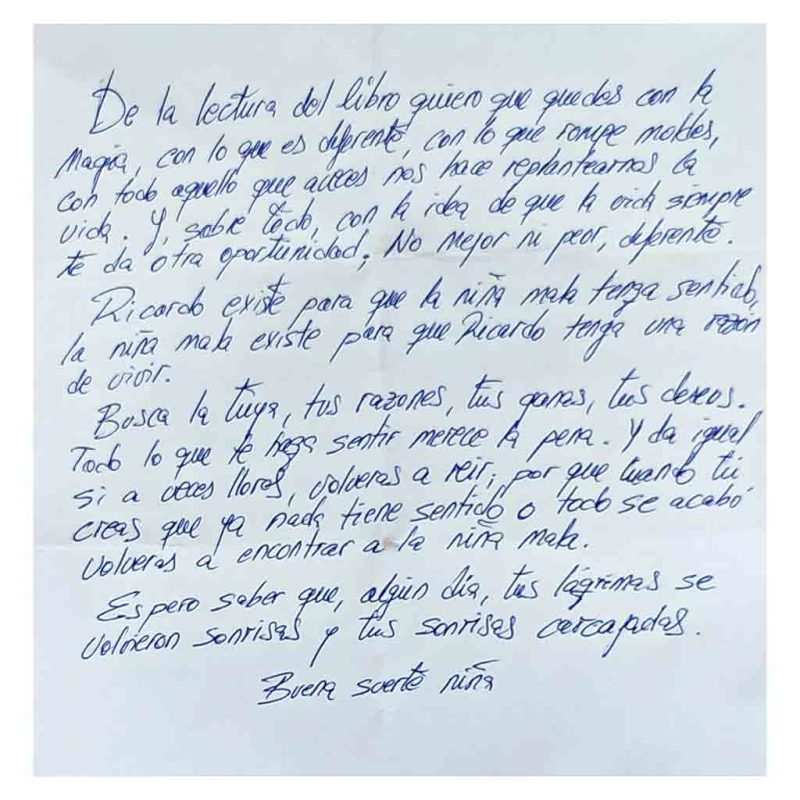 De la lectura del libro quiero que quedes con la
magia, con lo que es diferente, con lo que rompe moldes,
con todo aquello que a veces nos hace replantearnos la
vida. Y, sobre todo, con la idea de que la vida siempre
te da otra oportunidad; No mejor ni peor, diferente.
Ricardo existe para que la niña mala tenga sentido,
la niña mala existe para que Ricardo tenga una razón
de vivir.
Busca la tuya, tus razones, tus ganas, tus deseos.
Todo lo que te haga sentir merece la pena. Y da igual
si a veces lloras, volveras a reir, por que cuando tú
creas que ya nada tiene sentido o todo se acabó
volveras a encontrar a la niña mala.
Espero saber que, algún día, tus lágrimas se
volvieron sonrisas y tus sonrisas carcajadas.
Buena suerte niña